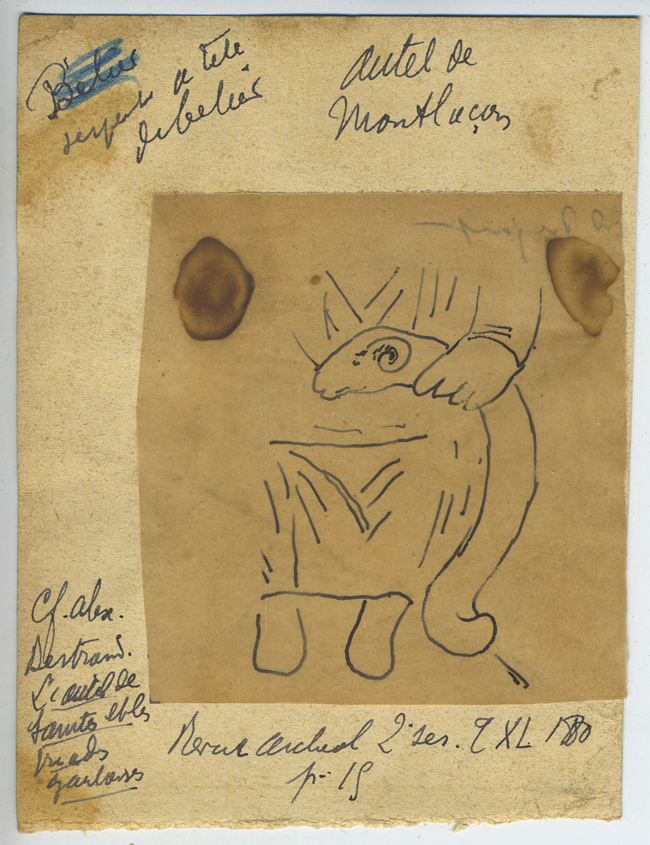 Bélier
serpent a tête
de bélier
autel de
Montluçon
Cf. alex.
Bertrand.
L'autel de
Saintes et les
triades
gauloises
Revue archeol 2e ser. T XL 1880
p. 15